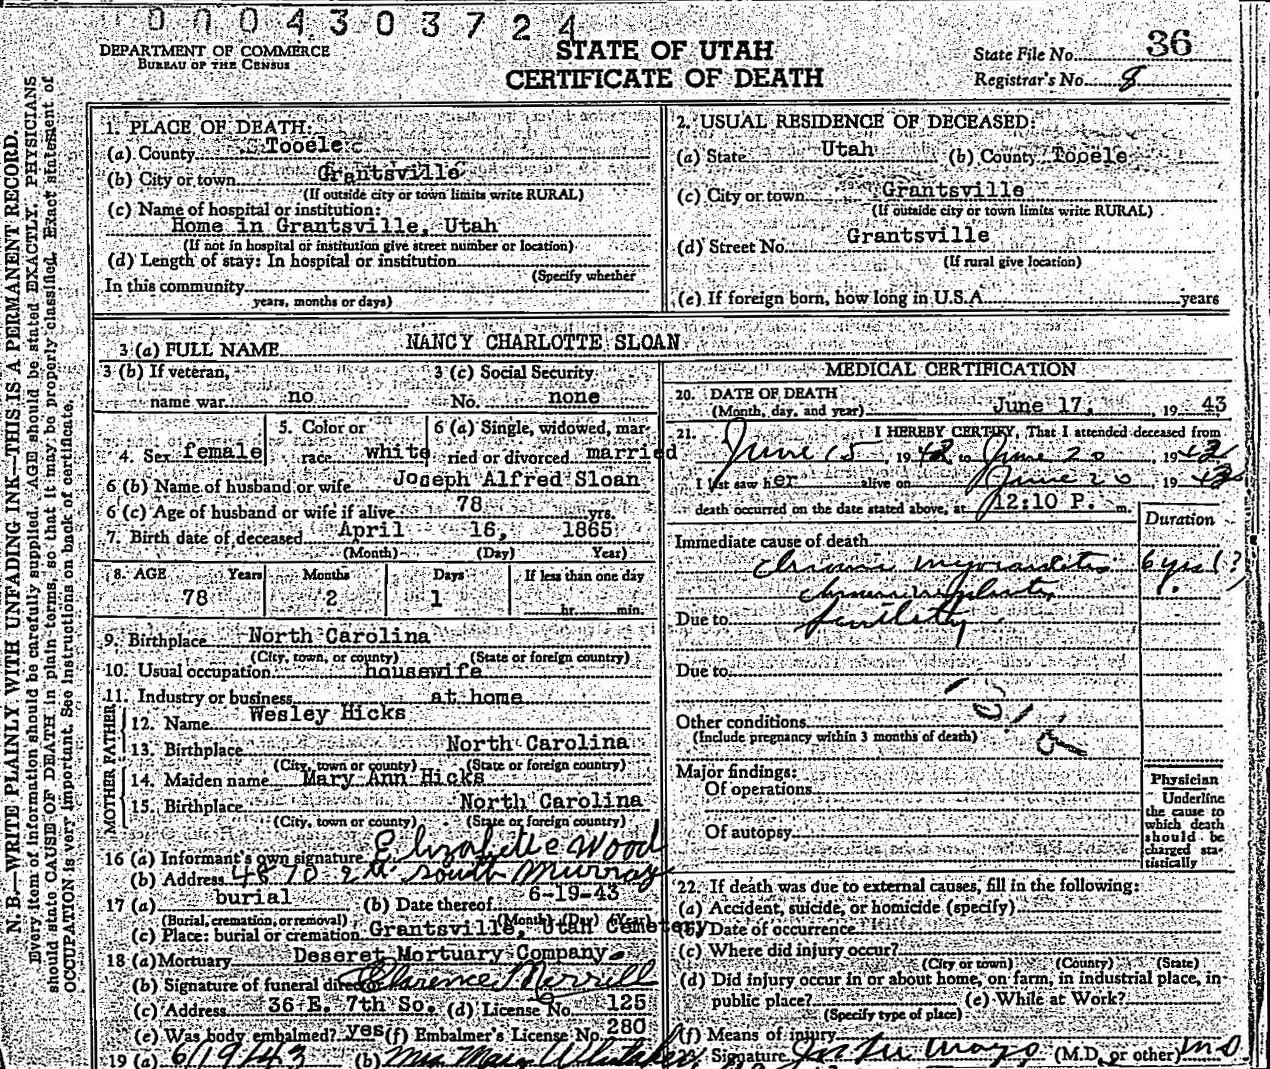 0004303724
DEPARTMENT OF COMMERCE
BUREAU OF THE CENSUS
STATE OF UTAH
CERTIFICATE OF DEATH
State File No. 36
Registrar's No. 8
N. B.—WRITE PLAINLY WITH UNFADING INK—THIS IS A PERMANENT RECORD.
Every item of information should be carefully supplied. AGE should be stated EXACTLY. PHYSICIANS
should state CAUSE OF DEATH in plain terms, so that it may be properly classified. Exact statement of
OCCUPATION is very important. See instructions on back of certificate.
1. PLACE OF DEATH:
(a) County Tooele
(b) City or town Grantsville
(If outside city or town limits write RURAL)
(c) Name of hospital or institution:
Home in Grantsville, Utah
(If not in hospital or institution give street number or location)
(d) Length of stay: In hospital or institution
(Specify whether
In this community
years, months or days)
2. USUAL RESIDENCE OF DECEASED:
(a) State Utah (b) County Tooele
(c) City or town Grantsville
(If outside city or town limits write RURAL)
(d) Street No. Grantsville
(If rural give location)
(e) If foreign born, how long in U.S.A. years
3 (a) FULL NAME NANCY CHARLOTTE SLOAN
3 (b) If veteran, 3 (c) Social Security
name war no No. none
5. Color or 6 (a) Single, widowed, mar-
4. Sex female race white ried or divorced married
6 (b) Name of husband or wife Joseph Alfred Sloan
6 (c) Age of husband or wife if alive 78 yrs.
7. Birth date of deceased April 16, 1865
(Month) (Day) Year)
8. AGE Years Months Days If less than one day
78 2 1 hr. min.
9. Birthplace North Carolina
(City, town, or county) (State or foreign country)
10. Usual occupation housewife
11. Industry or business at home
FATHER
12. Name Wesley Hicks
13. Birthplace North Carolina
(City, town or county) (State or foreign country)
MOTHER
14. Maiden name Mary Ann Hicks
15. Birthplace North Carolina
(City, town, or county) (State or foreign country)
16 (a) Informant's own signature Elizabeth Wood
(b) Address 4870 South Murray
17 (a) burial (b) Date thereof 6-19-43
(Burial, cremation, or removal) (Month) (Day) (Year)
(c) Place: burial or cremation Grantsville, Utah Cemetery
18 (a) Mortuary Deseret Mortuary Company
(b) Signature of funeral director Clarence Merrill
(c) Address 36 E. 7th So. (d) License No. 125
(e) Was body embalmed? yes (f) Embalmer's License No. 280
19 (a) 6/19/43 (b) Mrs
MEDICAL CERTIFICATION
20. DATE OF DEATH
(Month, day, and year) June 17, 19 43
21. I HEREBY CERTIFY, That I attended deceased from
June 15, 19 42 to June 20 19 43
I last saw her alive on June 20 19 43
death occurred on the date stated above, at 12:10 P. m.
Duration
Immediate cause of death
Chronic myocarditis 6 yrs (?)
Due to
Due to
Other conditions
(Include pregnancy within 3 months of death)
Major findings:
Of operations
Of autopsy
Physician
Underline
the cause to
which death
should be
charged sta-
tistically
22. If death was due to external causes, fill in the following:
(a) Accident, suicide, or homicide (specify)
(b) Date of occurrence
(c) Where did injury occur?
(City or town) (County) (State)
(d) Did injury occur in or about home, on farm, in industrial place, in
public place? (e) While at Work?
(Specify type of place)
(f) Means of injury
Signature (M.D. or other) MD